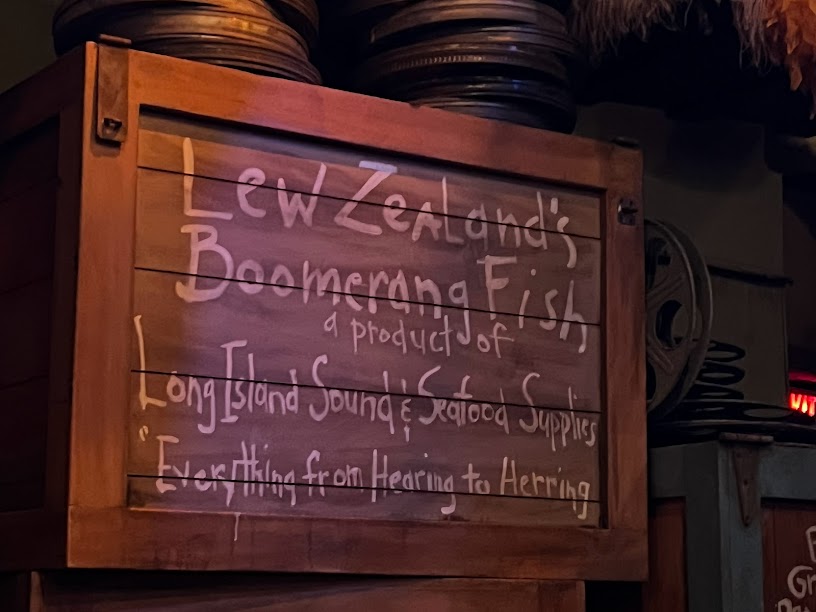 Lew Zealand's
Boomerang Fish
a product of
Long Island Sound & Seafood Supplies
"Everything from Hearing to Herring